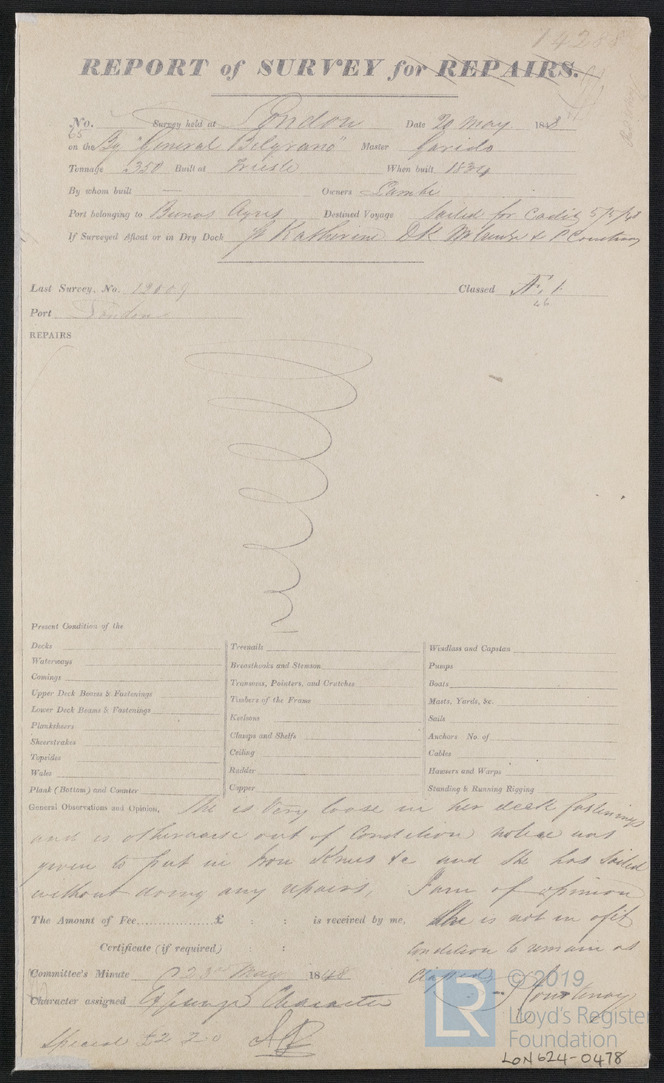 14288
REPORT of SURVEY for REPAIRS.
No. 65 Survey held at London Date 20 May 1848
on the Bg "General Belgrano" Master Garido
Tonnage 350 Built at Trieste When built 1834
By whom built — Owners Lambe
Port belonging to Bunos Ayres Destined Voyage Sailed for Cadiz 5/5/48
If Surveyed Afloat or in Dry Dock St Katherine DK & P Courtnay
Last Survey, No. 13609 Classed Æ 1
46
Port London
REPAIRS
Present Condition of the
Decks Treenails Windlass and Capstan
Waterways Breasthooks and Stemson Pumps
Comings Transoms, Pointers, and Crutches Boats
Upper Deck Beams & Fastenings Timbers of the Frame Masts, Yards, &c.
Lower Deck Beams & Fastenings Keelsons Sails
Planksheers Clamps and Shelfs Anchors No. of
Sheerstrakes Ceiling Cables
Topsides Rudder Hawsers and Warps
Wales Copper Standing & Running Rigging
Plank (Bottom) and Counter
General Observations and Opinion, She is very loose in her deck fastenings
and is otherwise out of Condition notice was
given to put in Iron Knees &c and she has Sailed
without doing any repairs, I am of opinion
The Amount of Fee £ : : is received by me, She is not in a fit
Certificate (if required) : : Condition to remain as
Committee's Minute 23rd May 1848 Classed
Character assigned Expunge Character Courtnay
Special £2 2 0
© 2019
Lloyd's Register
Foundation
LR
LON624-0478